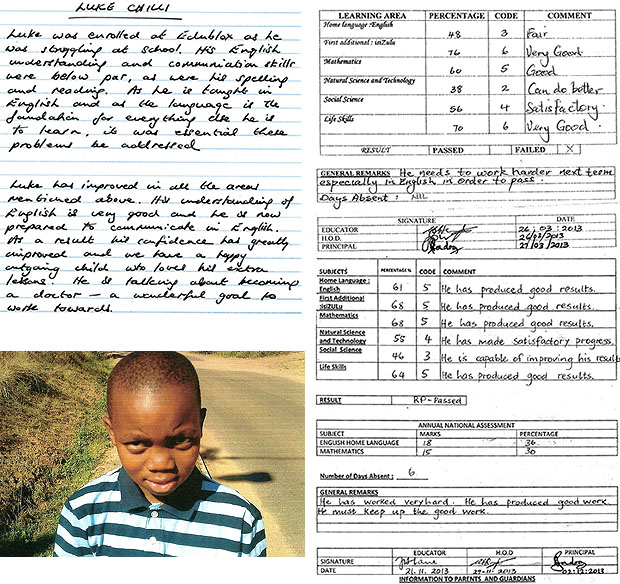 LUKE CHILLI
Luke was enrolled at Edublox as he
was struggling at school. His English
understanding and communication skills
were below par, as were his spelling
and reading. As he is taught in
English and as the language is the
foundation for everything else he is
to learn, it was essential these
problems be addressed
Luke has improved in all the areas
mentioned above. His understanding of
English is very good and he is now
prepared to communicate in English.
As a result his confidence has greatly
improved and we have a happy
outgoing child who loves his extra
lessons. He is talking about becoming
a doctor – a wonderful goal to
work towards.
LEARNING AREA PERCENTAGE CODE COMMENT
Home language :English 48 3 Fair
First additional : isiZulu 76 6 Very Good
Mathematics 60 5 Good
Natural Science and Technology 38 2 Can do better
Social Science 56 4 Satisfactory
Life Skills 70 6 Very Good
RESULT PASSED FAILED X
GENERAL REMARKS He needs to work harder next term
especially in English in order to pass.
Days Absent : NIL
SIGNATURE DATE
EDUCATOR 26 : 03 : 2013
H.O.D. 26/03/2013
PRINCIPAL 27/03/2013
SUBJECTS PERCENTAGE % CODE COMMENT
Home Language : English 61 5 He has produced good results.
First Additional :isiZULU 68 5 He has produced good results.
Mathematics 68 5 He has produced good results.
Natural Science and Technology 55 4 He has made satisfactory progress.
Social Science 46 3 He is capable of improving his result
Life Skills 64 5 He has produced good results.
RESULT RP-Passed
ANNUAL NATIONAL ASSESSMENT
SUBJECT MARKS PERCENTAGE
ENGLISH HOME LANGUAGE 18 36
MATHEMATICS 15 30
Number of Days Absent : 6
GENERAL REMARKS
He has worked very hard. He has produced good work.
He must keep up the good work.
EDUCATOR H.O.D PRINCIPAL
SIGNATURE
DATE 21.11.2013 29-11-2013 02.12.2013
INFORMATION TO PARENTS AND GUARDIANS